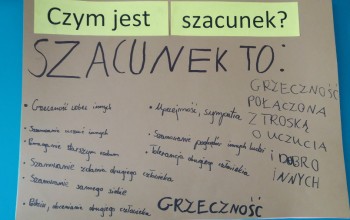 Czym jest szacunek?
SZACUNEK TO:
• Grzeczność wobec innych
Szanowanie uczuć innych
• Pomaganie starszym osobom
• Szanowanie zdania drugiego człowieka
• Szanowanie samego siebie
drugiego człowieka
• Uprzejmość, sympatia
• Szanowanie poglądów innych ludzi
• Tolerancja drugiego człowieka
GRZECZNOŚĆ
GRZECZNOŚĆ
POŁĄCZONA
Z TROSKĄ
O UCZUCIA
I DOBRO
INNYCH